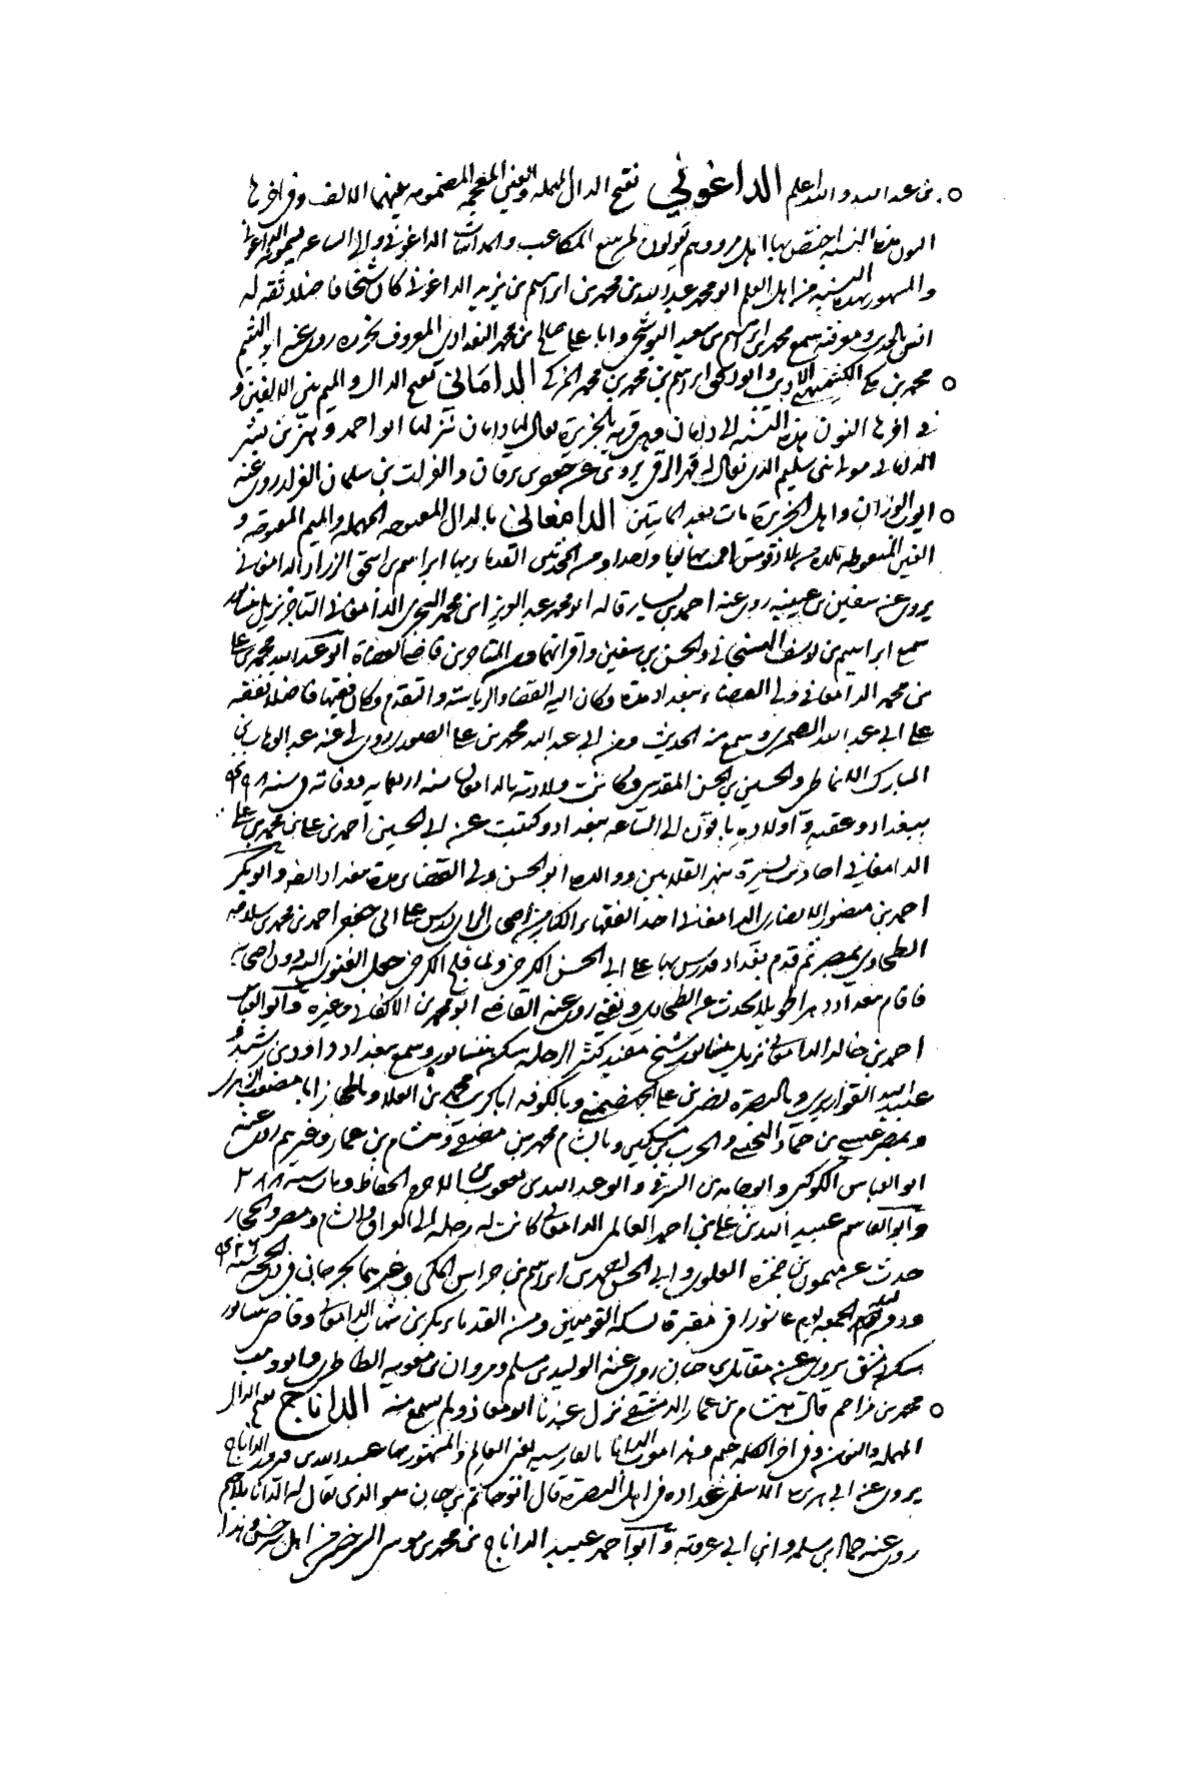 بن عبد الله والله اعلم الداغوني بفتح الدال المهملة والغين المعجمة المضمومة بينهما الالف وفي اخرها
النون هذه النسبة اختص بها اهل مرو وهم يقولون لمن يبيع المكاعب والمداسات الداغوني والى الساعه يسمونه الداغوني
والمشهور بهذه النسبة من اهل العلم ابو محمد عبد الله بن محمد بن ابراهيم بن يزيد الداغوني كان شيخا فاضلا ثقه له
انس بالحديث ومعرفة سمع محمد بن ابراهيم بن سعيد البوشنجي وابا علي صالح بن محمد البغدادي المعروف بجزره روى عنه ابو الهيثم
محمد بن مكي الكشميهني الاديب وابو زكى ابراهيم بن محمد بن محمد المزكي الداماني بفتح الدال والميم بين الالفين و
في اخرها النون هذه النسبة الى دامان وهي قرية بالجزيرة يقال لها دامان نزلها ابو احمد فهر بن بشر
الداماني مولى بني سليم الذي يقال له فهر الرقي يروي عن جعفر بن برقان والفرات بن سلمان القراد روى عنه
ايوب الوزان واهل الجزيرة مات بعد المايتين الدامغاني بالدال المفتوحه المهمله والميم المفتوحه و
الغين المنقوطه بلدة من بلاد قومس اقمت بها يوما واحدا ومن المحدثين القدماء بها ابراهيم بن اسحق الزراد الدامغاني
يروي عن سفين بن عيينه روى عنه احمد بن سيار قاله ابو محمد عبد العزيز ابن محمد النخشبي الدامغاني التاجر نزيل نيسابور
سمع ابراهيم بن يوسف الهسنجاني والحسن بن سفين واقرانهما ومن المتاخرين قاضي القضاة ابو عبد الله محمد بن علي
بن محمد الدامغاني ولي القضاء ببغداد مدة وكان اليه القضاء والرياسة والتقدم وكان فقيها فاضلا تفقه
على ابي عبد الله الصيمري وسمع منه الحديث ومن ابي عبد الله محمد بن علي الصوري روى لي عنه عبد الوهاب بن
المبارك الانماطي والحسين بن الحسن المقدسي وكانت ولادته بالدامغان سنه اربعمايه ووفاته في سنه ٤٩٨
ببغداد وعقبه واولاده باقون الى الساعه ببغداد وكتبت عن ابي الحسين احمد بن علي بن محمد بن علي
الدامغاني احاديث يسيرة بنهر القلايين ووالده ابو الحسن ولي القضاء مدة ببغداد ايضا وابو بكر
احمد بن منصور الانصاري الدامغاني احد الفقهاء الكبار من اصحاب الراي درس على ابي جعفر احمد بن محمد بن سلامه
الطحاوي بمصر ثم قدم بغداد فدرس بها على ابي الحسن الكرخي ولما فلج الكرخي جعل الفتوى اليه دون اصحابه
فاقام ببغداد دهرا طويلا يحدث عن الطحاوي ويفتي روى عنه القاضي ابو محمد بن الاكفاني وغيره وابو العباس
احمد بن خالد الدامغاني نزيل نيسابور شيخ مفيد كثير الرحله سكن نيسابور وسمع ببغداد داود بن رشيد و
عبيد الله القواريري وبالبصرة نصر بن علي الجهضمي وبالكوفه ابا كريب محمد بن العلاء وبالحجاز ابا مصعب الزهري
وبمصر عيسى بن حماد التجيبي والحرث بن مسكين وبالشام محمد بن مصفى وهشام بن عمار وغيرهم روى عنه
ابو العباس الكوكبي وابو حامد بن الشرقي وابو عبد الله بن يعقوب الاخرم الحفاظ ومات سنه ٢٨٨
وابو القاسم عبيد الله بن علي بن احمد العالم الدامغاني كانت له رحلة الى العراق والشام ومصر والحجاز
حدث عن ميمون بن حمزة العلوي وابي الحسن احمد بن ابراهيم بن فراس المكي وغيرهما بجرجان في ذي الحجة سنه ٤٣٦
ودفن يوم الجمعه يوم عاشورا في مقبرة سكة القومسيين ومن القدماء بكر بن شهاب الدامغاني وقاضي نيسابور
سكن دمشق يروي عن مقاتل بن حيان روى عنه الوليد بن مسلم ومروان بن معويه الطاطري وابو وهب
محمد بن مزاحم قال هشام بن عمار الدمشقي نزل عندنا ابو معاذ ولم اسمع منه الداناج بفتح الدال
المهمله والنون وفي اخر الكلمه جيم وهذا معرب الدانا بالفارسيه يعني العالم والمشهور بها عبد الله بن فيروز الداناج
يروي عن ابي برزة الاسلمي عداده في اهل البصرة قال ابو حاتم بن حبان هو الذي يقال له الدانا بلا جيم
روى عنه حماد بن سلمه وابن ابي عروبة وابو احمد عبيد الداناج بن محمد بن موسى السرخسي من اهل سرخس وهذا